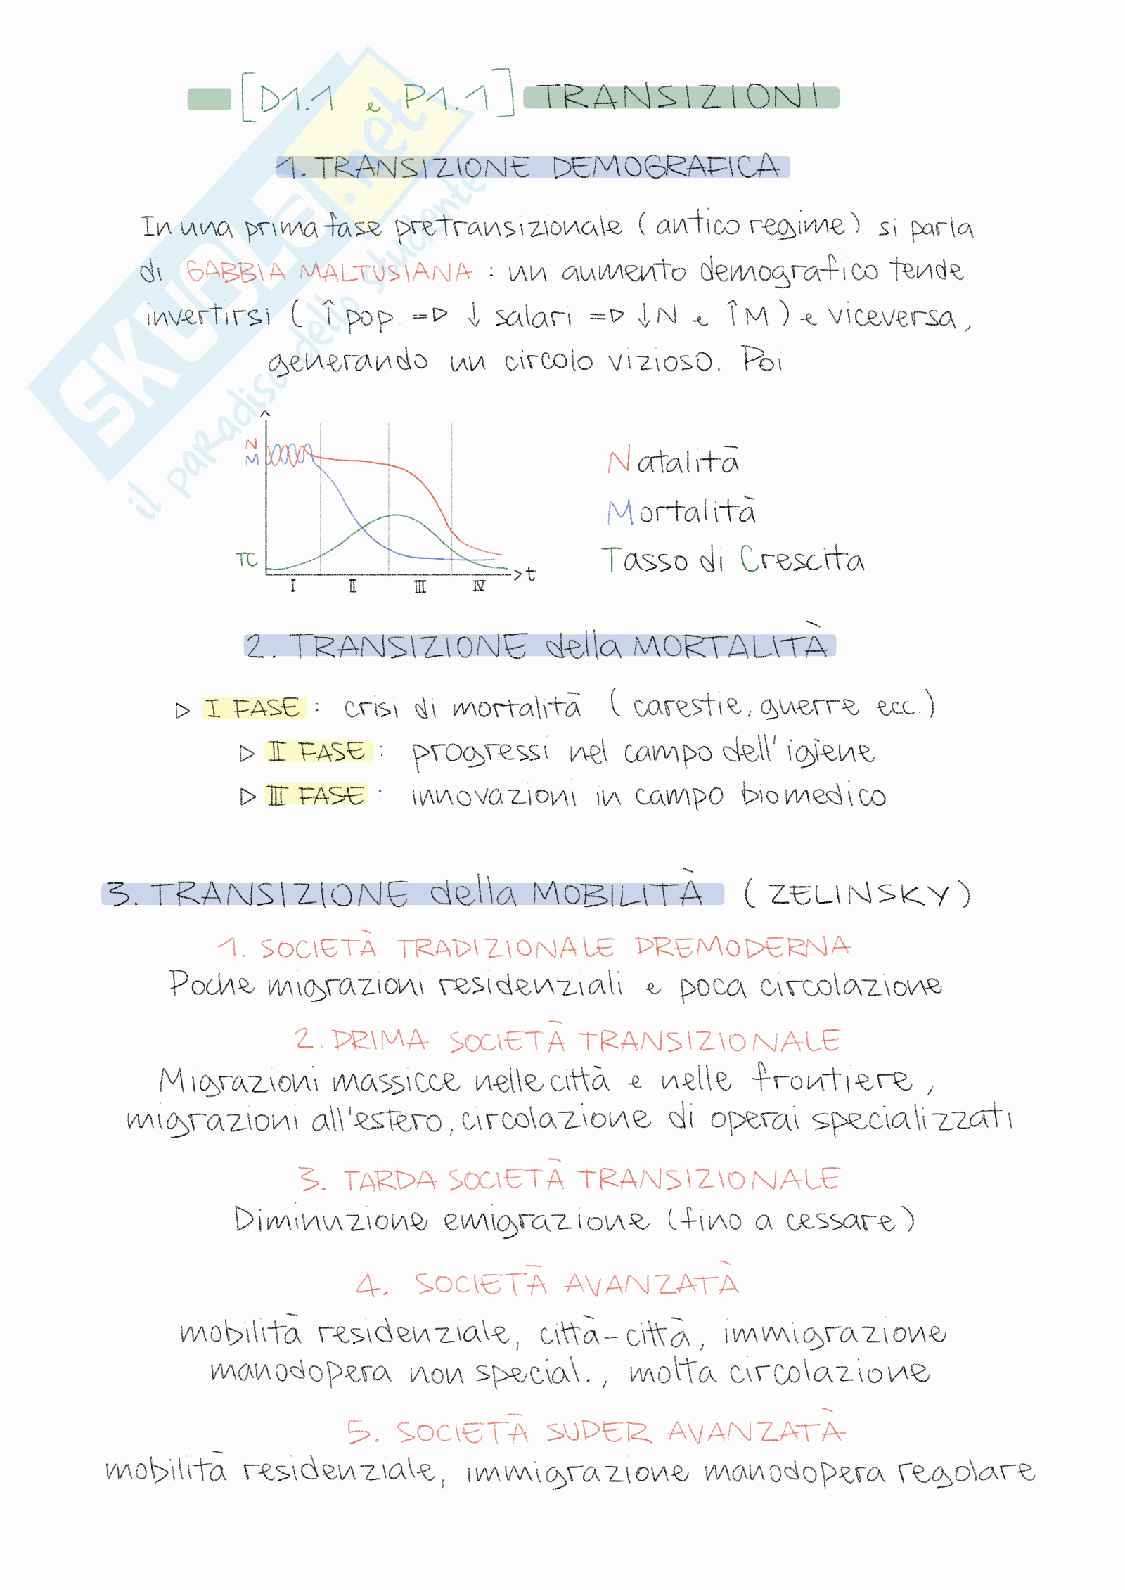 [D1.1 e P1.1] TRANSIZIONI
1. TRANSIZIONE DEMOGRAFICA
In una prima fase pretransizionale (antico regime) si parla
di GABBIA MALTUSIANA : un aumento demografico tende
invertirsi ( ↑ pop => ↓ salari => ↓N e ↑M ) e viceversa,
generando un circolo vizioso. Poi
N
M
TC
>t
I II III IV
Natalità
Mortalità
Tasso di Crescita
2. TRANSIZIONE della MORTALITÀ
▷ I FASE : crisi di mortalità ( carestie, guerre ecc.)
▷ II FASE : progressi nel campo dell'igiene
▷ III FASE : innovazioni in campo biomedico
3. TRANSIZIONE della MOBILITÀ ( ZELINSKY )
1. SOCIETÀ TRADIZIONALE PREMODERNA
Poche migrazioni residenziali e poca circolazione
2. PRIMA SOCIETÀ TRANSIZIONALE
Migrazioni massicce nelle città e nelle frontiere,
migrazioni all'estero, circolazione di operai specializzati
3. TARDA SOCIETÀ TRANSIZIONALE
Diminuzione emigrazione (fino a cessare)
4. SOCIETÀ AVANZATÀ
mobilità residenziale, città-città, immigrazione
manodopera non special., molta circolazione
5. SOCIETÀ SUPER AVANZATÀ
mobilità residenziale, immigrazione manodopera regolare
SKUOLA.net
il paRadiso dello studente